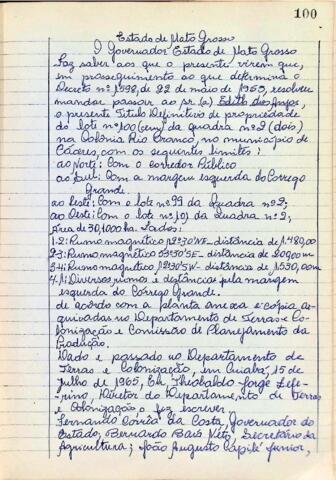 100
Estado de Mato Grosso
O Governador Estado de Mato Grosso
Faz saber aos que o presente virem que,
em prosseguimento ao que determina o
Decreto nº 1598, de 22 de maio de 1953, resolveu
mandar passar ao sr. (a) Edith dos Anjos,
o presente Título Definitivo de propriedade
do lote nº 100 (cem) da quadra nº 2 (dois)
na Colônia Rio Branco, no município de
Cáceres, com os seguintes limites:
ao Norte: Com o corredor Público
ao Sul: Com a margem esquerda do Corrego
Grande.
ao Leste: Com o lote nº 99 da Quadra nº 2;
ao Oeste: Com o lote nº 101 da quadra nº 2,
Área de 30,1000 ha. Lados:
1-2: Rumo magnético 2º30'NE - distância de 1.480,00
2-3: Rumo magnético 53º30'SE - distância de 200,00 m
3-4: Rumo magnético 2º30'SW - distância de 1.530,00 m
4-1: Diversos rumos e distâncias pela margem
esquerda do Córrego Grande.
de acordo com a planta anexa e Cópia, ar-
quivadas no Departamento de Terras e Co-
lonização e Comissão de Planejamento da
Produção.
Dado e passado no Departamento de
Terras e Colonização, em Cuiabá, 15 de
Julho de 1965, Eu, Thesbaldo Jorge Zefe-
rino, Diretor do Departamento de Terras
e Colonização o fez escrever
Fernando Corrêa da Costa, Governador do
Estado; Bernardo Bais Neto, Secretário da
Agricultura; João Augusto Capilé Junior,